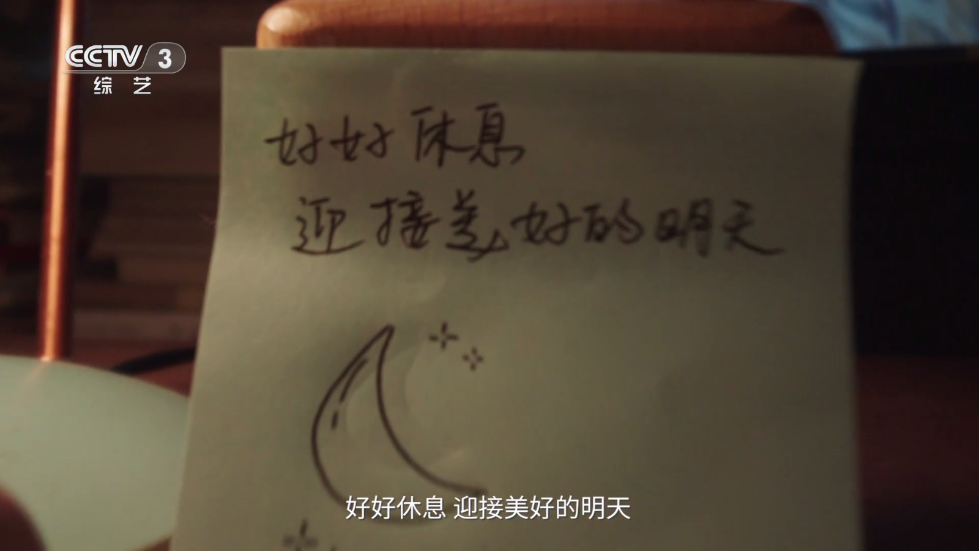 CCTV 3
综艺
好好休息
迎接美好的明天
好好休息 迎接美好的明天